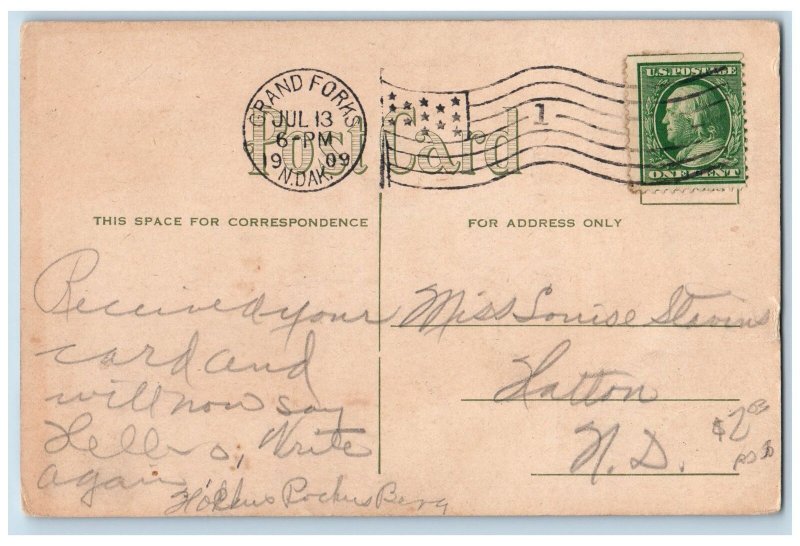 GRAND FORKS
JUL 13
6-PM
1909
N.DAK.
1
U.S. POSTAGE
ONE CENT
Post Card
THIS SPACE FOR CORRESPONDENCE
FOR ADDRESS ONLY
Received your
card and
will now say
Hello, Write
again
Hokus Pockus Berg
Miss Louise Stavens
Hatton
N.D.